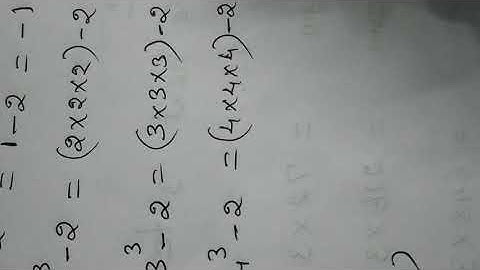 = 1 - 2 = -1
³ - 2 = (2×2×2) - 2
3³ - 2 = (3×3×3) - 2
4³ - 2 = (4×4×4) - 2